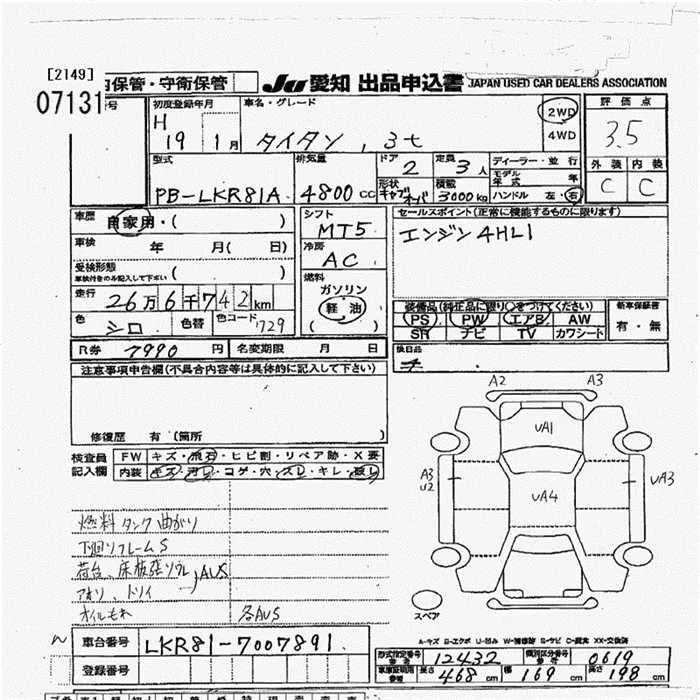 [2149]
07131
内保管・守衛保管 JU 愛知 出品申込書 JAPAN USED CAR DEALERS ASSOCIATION
号 初度登録年月 車名・グレード 2WD 評価点
H 4WD 3.5
19 1月 タイタン , 3t
型式 排気量 ドア 2 定員 3人 ディーラー・並行 外装 内装
モデル年式 年
PB-LKR81A 4800cc 形状 キャブオーバ 積載 3000kg ハンドル 左・右 C C
車歴 自家用・( ) シフト セールスポイント(正常に機能するものに限ります)
MT5 エンジン4HL1
車検 年 月( 日) 冷房
受検形態 AC
車検付きのみ記入して下さい ( ) 燃料
走行 26万6千742km ガソリン
軽油 装備品(純正品に限り○をつけてください) 新車保証書
色 シロ 色替 色コード 729 ( ) PS PW エアB AW 有・無
SR ナビ TV カワシート
R券 7990円 名変期限 月 日 後日品
注意事項申告欄(不具合内容等は具体的に記入して下さい)
A2 A3
UA1
修復歴 有(箇所
検査員 FW キズ・飛石・ヒビ割・リペア跡・X要
記入欄 内装 キズ・汚レ・コゲ・穴・スレ・キレ・破レ
A3 U2 UA4 UA3
燃料タンク曲がり
下回りフレームS
荷台、床板張ソリ
AUS
アオリ、トリイ
オイルもれ 各AUS
スペア
A-キズ E-エクボ U-凹み W-補修跡 S-サビ C-腐食 XX-交換済
車台番号 LKR81-7007891
型式指定番号 12432 類別区分番号 0619
登録番号 車庫証明用参考 長さ 468cm 幅 169cm 高さ 198cm